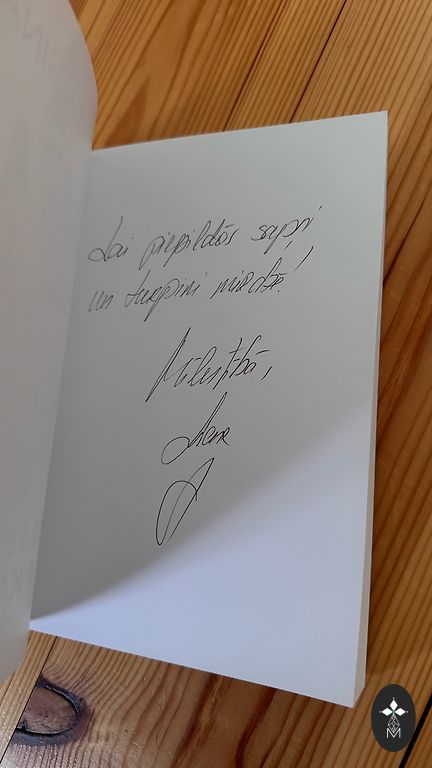 Lai piepildās sapņi
un turpini mirdzēt!
Mīlestībā,